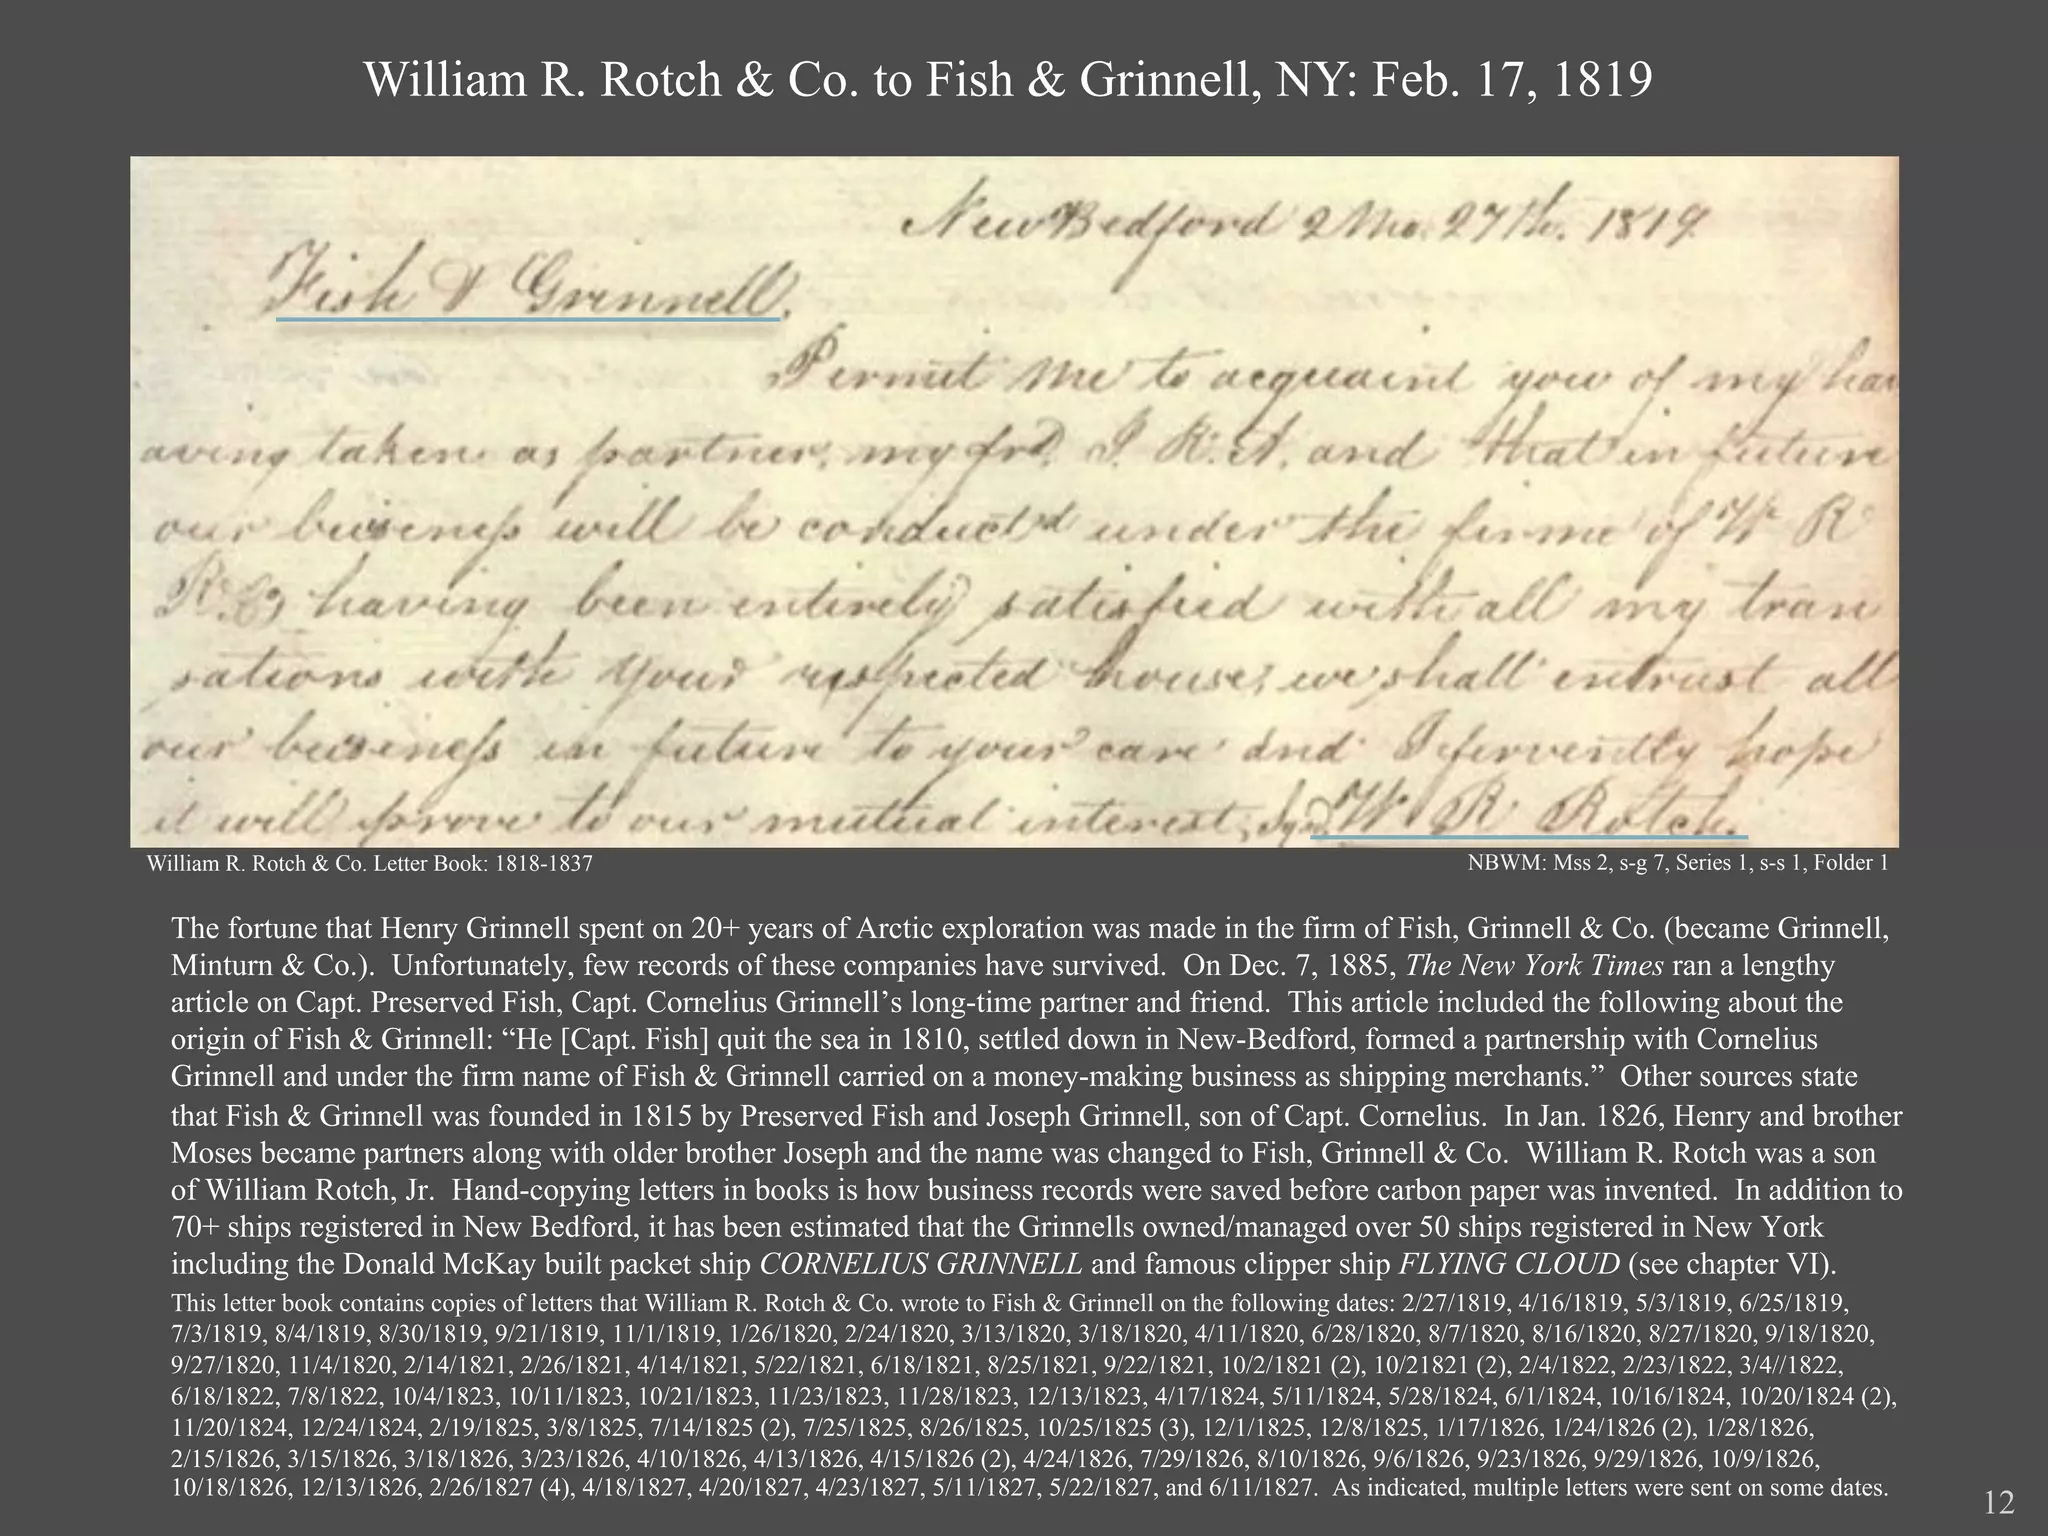 William R. Rotch & Co. to Fish & Grinnell, NY: Feb. 17, 1819
New Bedford 2 Mo. 27th. 1819
Fish & Grinnell.
Permit me to acquaint you of my hav
aving taken as partner, my frd. J. R. A. and that in future
our buisiness will be conductd under the firme of W R
R. & Co having been entirely satisfied with all my tran
sations with your respected house, we shall entrust all
our buisiness in future to your care and I fervently hope
it will prove to our mutual interest, Sgd. W. R. Rotch.
William R. Rotch & Co. Letter Book: 1818-1837
NBWM: Mss 2, s-g 7, Series 1, s-s 1, Folder 1
The fortune that Henry Grinnell spent on 20+ years of Arctic exploration was made in the firm of Fish, Grinnell & Co. (became Grinnell,
Minturn & Co.).  Unfortunately, few records of these companies have survived.  On Dec. 7, 1885, The New York Times ran a lengthy
article on Capt. Preserved Fish, Capt. Cornelius Grinnell’s long-time partner and friend.  This article included the following about the
origin of Fish & Grinnell: “He [Capt. Fish] quit the sea in 1810, settled down in New-Bedford, formed a partnership with Cornelius
Grinnell and under the firm name of Fish & Grinnell carried on a money-making business as shipping merchants.”  Other sources state
that Fish & Grinnell was founded in 1815 by Preserved Fish and Joseph Grinnell, son of Capt. Cornelius.  In Jan. 1826, Henry and brother
Moses became partners along with older brother Joseph and the name was changed to Fish, Grinnell & Co.  William R. Rotch was a son
of William Rotch, Jr.  Hand-copying letters in books is how business records were saved before carbon paper was invented.  In addition to
70+ ships registered in New Bedford, it has been estimated that the Grinnells owned/managed over 50 ships registered in New York
including the Donald McKay built packet ship CORNELIUS GRINNELL and famous clipper ship FLYING CLOUD (see chapter VI).
This letter book contains copies of letters that William R. Rotch & Co. wrote to Fish & Grinnell on the following dates: 2/27/1819, 4/16/1819, 5/3/1819, 6/25/1819,
7/3/1819, 8/4/1819, 8/30/1819, 9/21/1819, 11/1/1819, 1/26/1820, 2/24/1820, 3/13/1820, 3/18/1820, 4/11/1820, 6/28/1820, 8/7/1820, 8/16/1820, 8/27/1820, 9/18/1820,
9/27/1820, 11/4/1820, 2/14/1821, 2/26/1821, 4/14/1821, 5/22/1821, 6/18/1821, 8/25/1821, 9/22/1821, 10/2/1821 (2), 10/21821 (2), 2/4/1822, 2/23/1822, 3/4//1822,
6/18/1822, 7/8/1822, 10/4/1823, 10/11/1823, 10/21/1823, 11/23/1823, 11/28/1823, 12/13/1823, 4/17/1824, 5/11/1824, 5/28/1824, 6/1/1824, 10/16/1824, 10/20/1824 (2),
11/20/1824, 12/24/1824, 2/19/1825, 3/8/1825, 7/14/1825 (2), 7/25/1825, 8/26/1825, 10/25/1825 (3), 12/1/1825, 12/8/1825, 1/17/1826, 1/24/1826 (2), 1/28/1826,
2/15/1826, 3/15/1826, 3/18/1826, 3/23/1826, 4/10/1826, 4/13/1826, 4/15/1826 (2), 4/24/1826, 7/29/1826, 8/10/1826, 9/6/1826, 9/23/1826, 9/29/1826, 10/9/1826,
10/18/1826, 12/13/1826, 2/26/1827 (4), 4/18/1827, 4/20/1827, 4/23/1827, 5/11/1827, 5/22/1827, and 6/11/1827.  As indicated, multiple letters were sent on some dates.
12